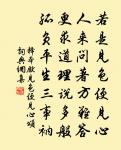 若是見色便見心
人来問著方難答
更求道理説多般
孤負平生三事衲
見色便見心頌
詞典網集